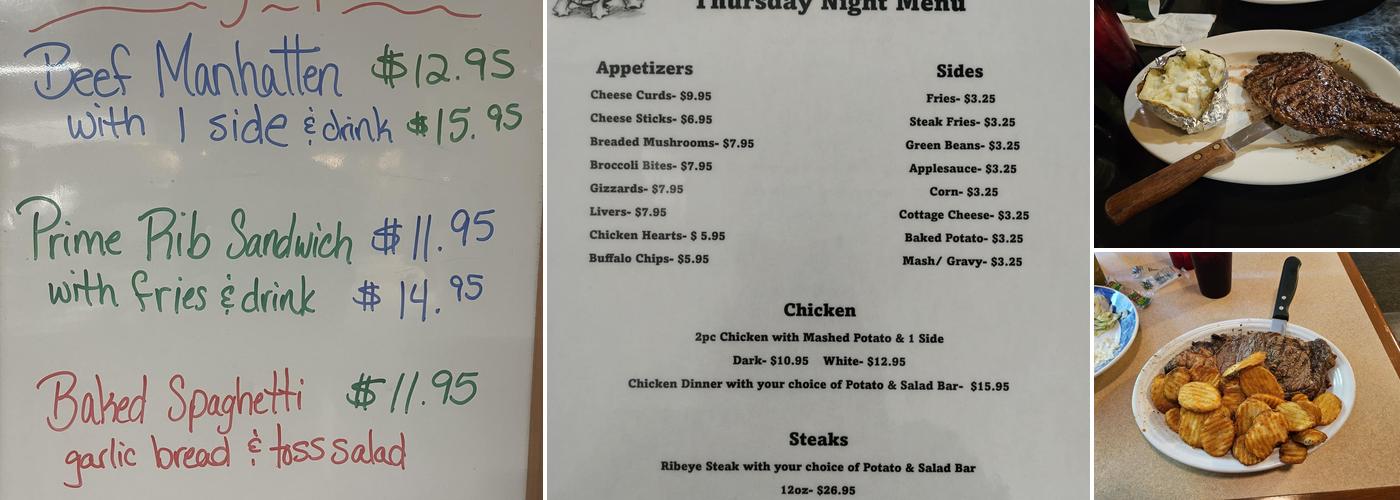 Beef Manhatten $12.95
with 1 side & drink $15.95
Prime Rib Sandwich $11.95
with fries & drink $14.95
Baked Spaghetti $11.95
garlic bread & toss salad
Thursday Night Menu
Appetizers
Cheese Curds- $9.95
Cheese Sticks- $6.95
Breaded Mushrooms- $7.95
Broccoli Bites- $7.95
Gizzards- $7.95
Livers- $7.95
Chicken Hearts- $ 5.95
Buffalo Chips- $5.95
Sides
Fries- $3.25
Steak Fries- $3.25
Green Beans- $3.25
Applesauce- $3.25
Corn- $3.25
Cottage Cheese- $3.25
Baked Potato- $3.25
Mash/ Gravy- $3.25
Chicken
2pc Chicken with Mashed Potato & 1 Side
Dark- $10.95 White- $12.95
Chicken Dinner with your choice of Potato & Salad Bar- $15.95
Steaks
Ribeye Steak with your choice of Potato & Salad Bar
12oz- $26.95